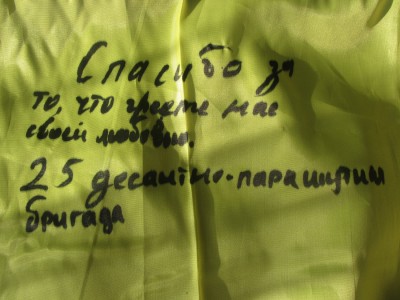 Спасибо за
то, что греете нас
своей любовью.
25 десантно-парашутим
бригада